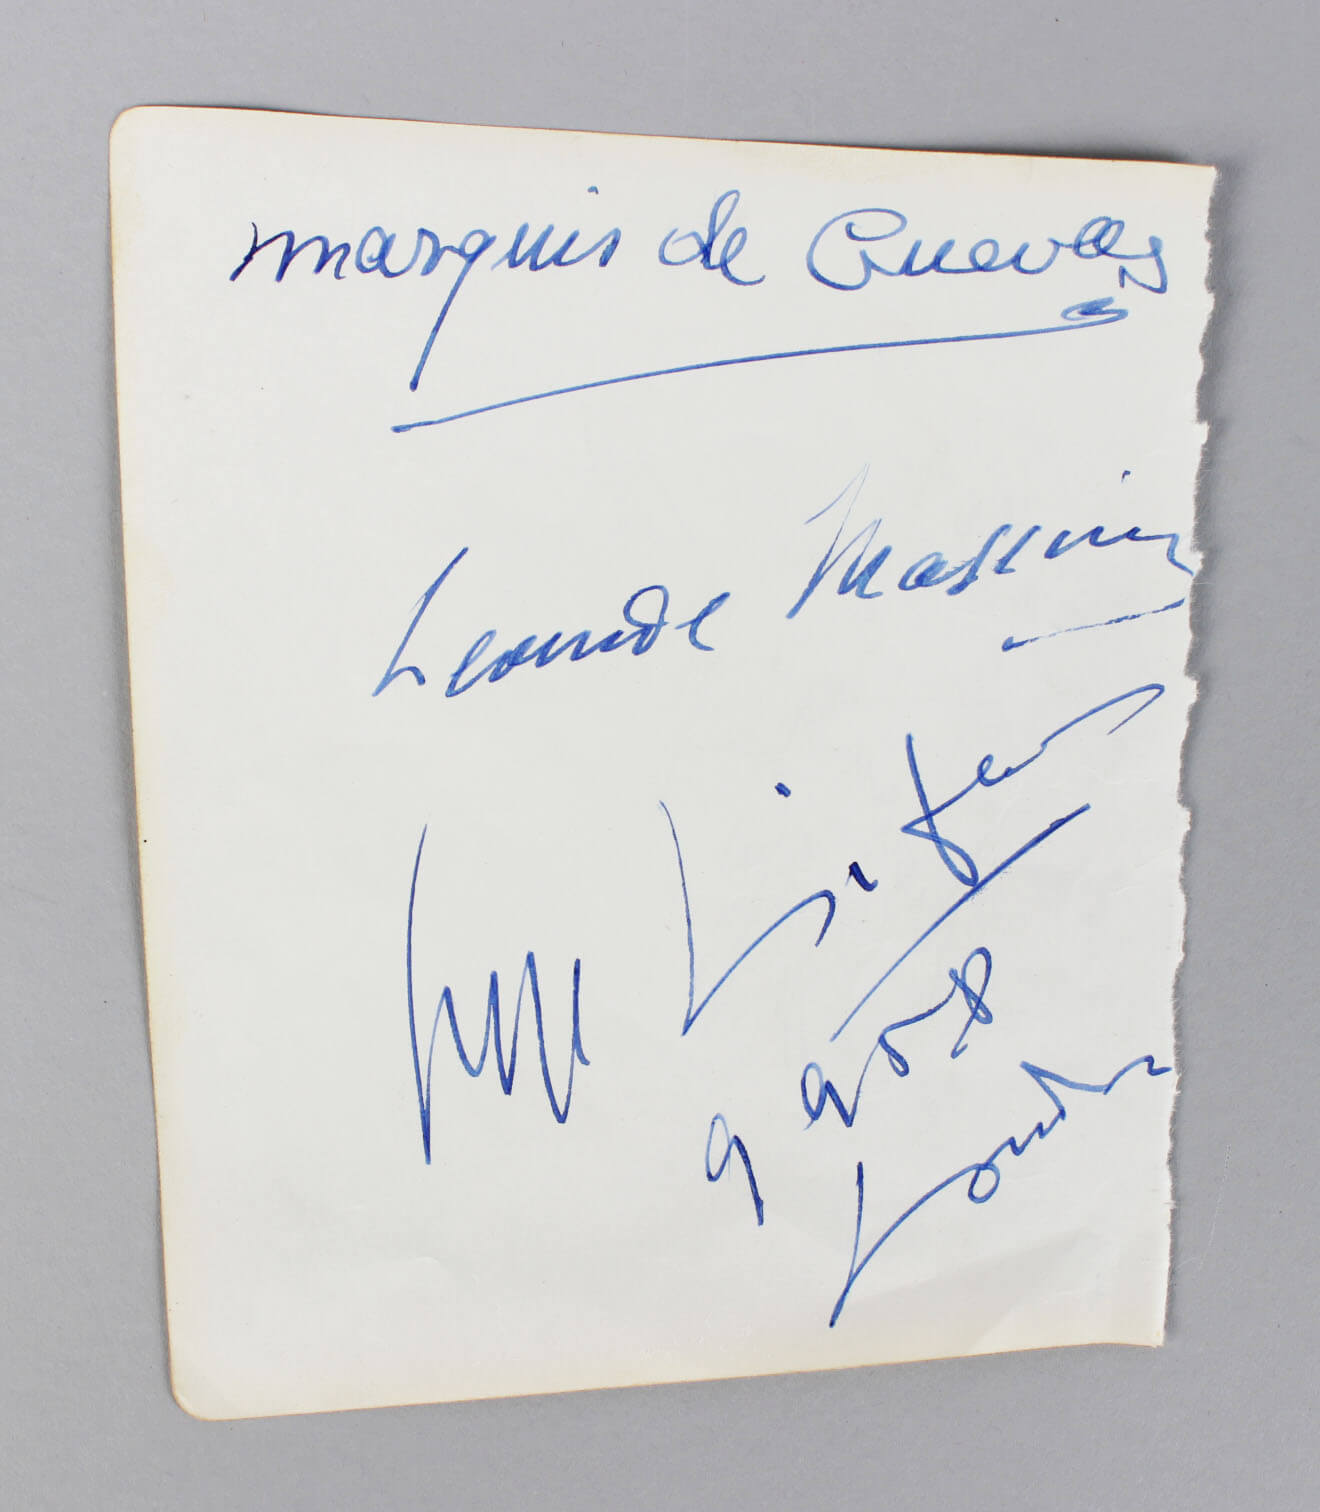 Marquis de Cuevas
Leonide Massine
Serge Lifar
1958
Londres